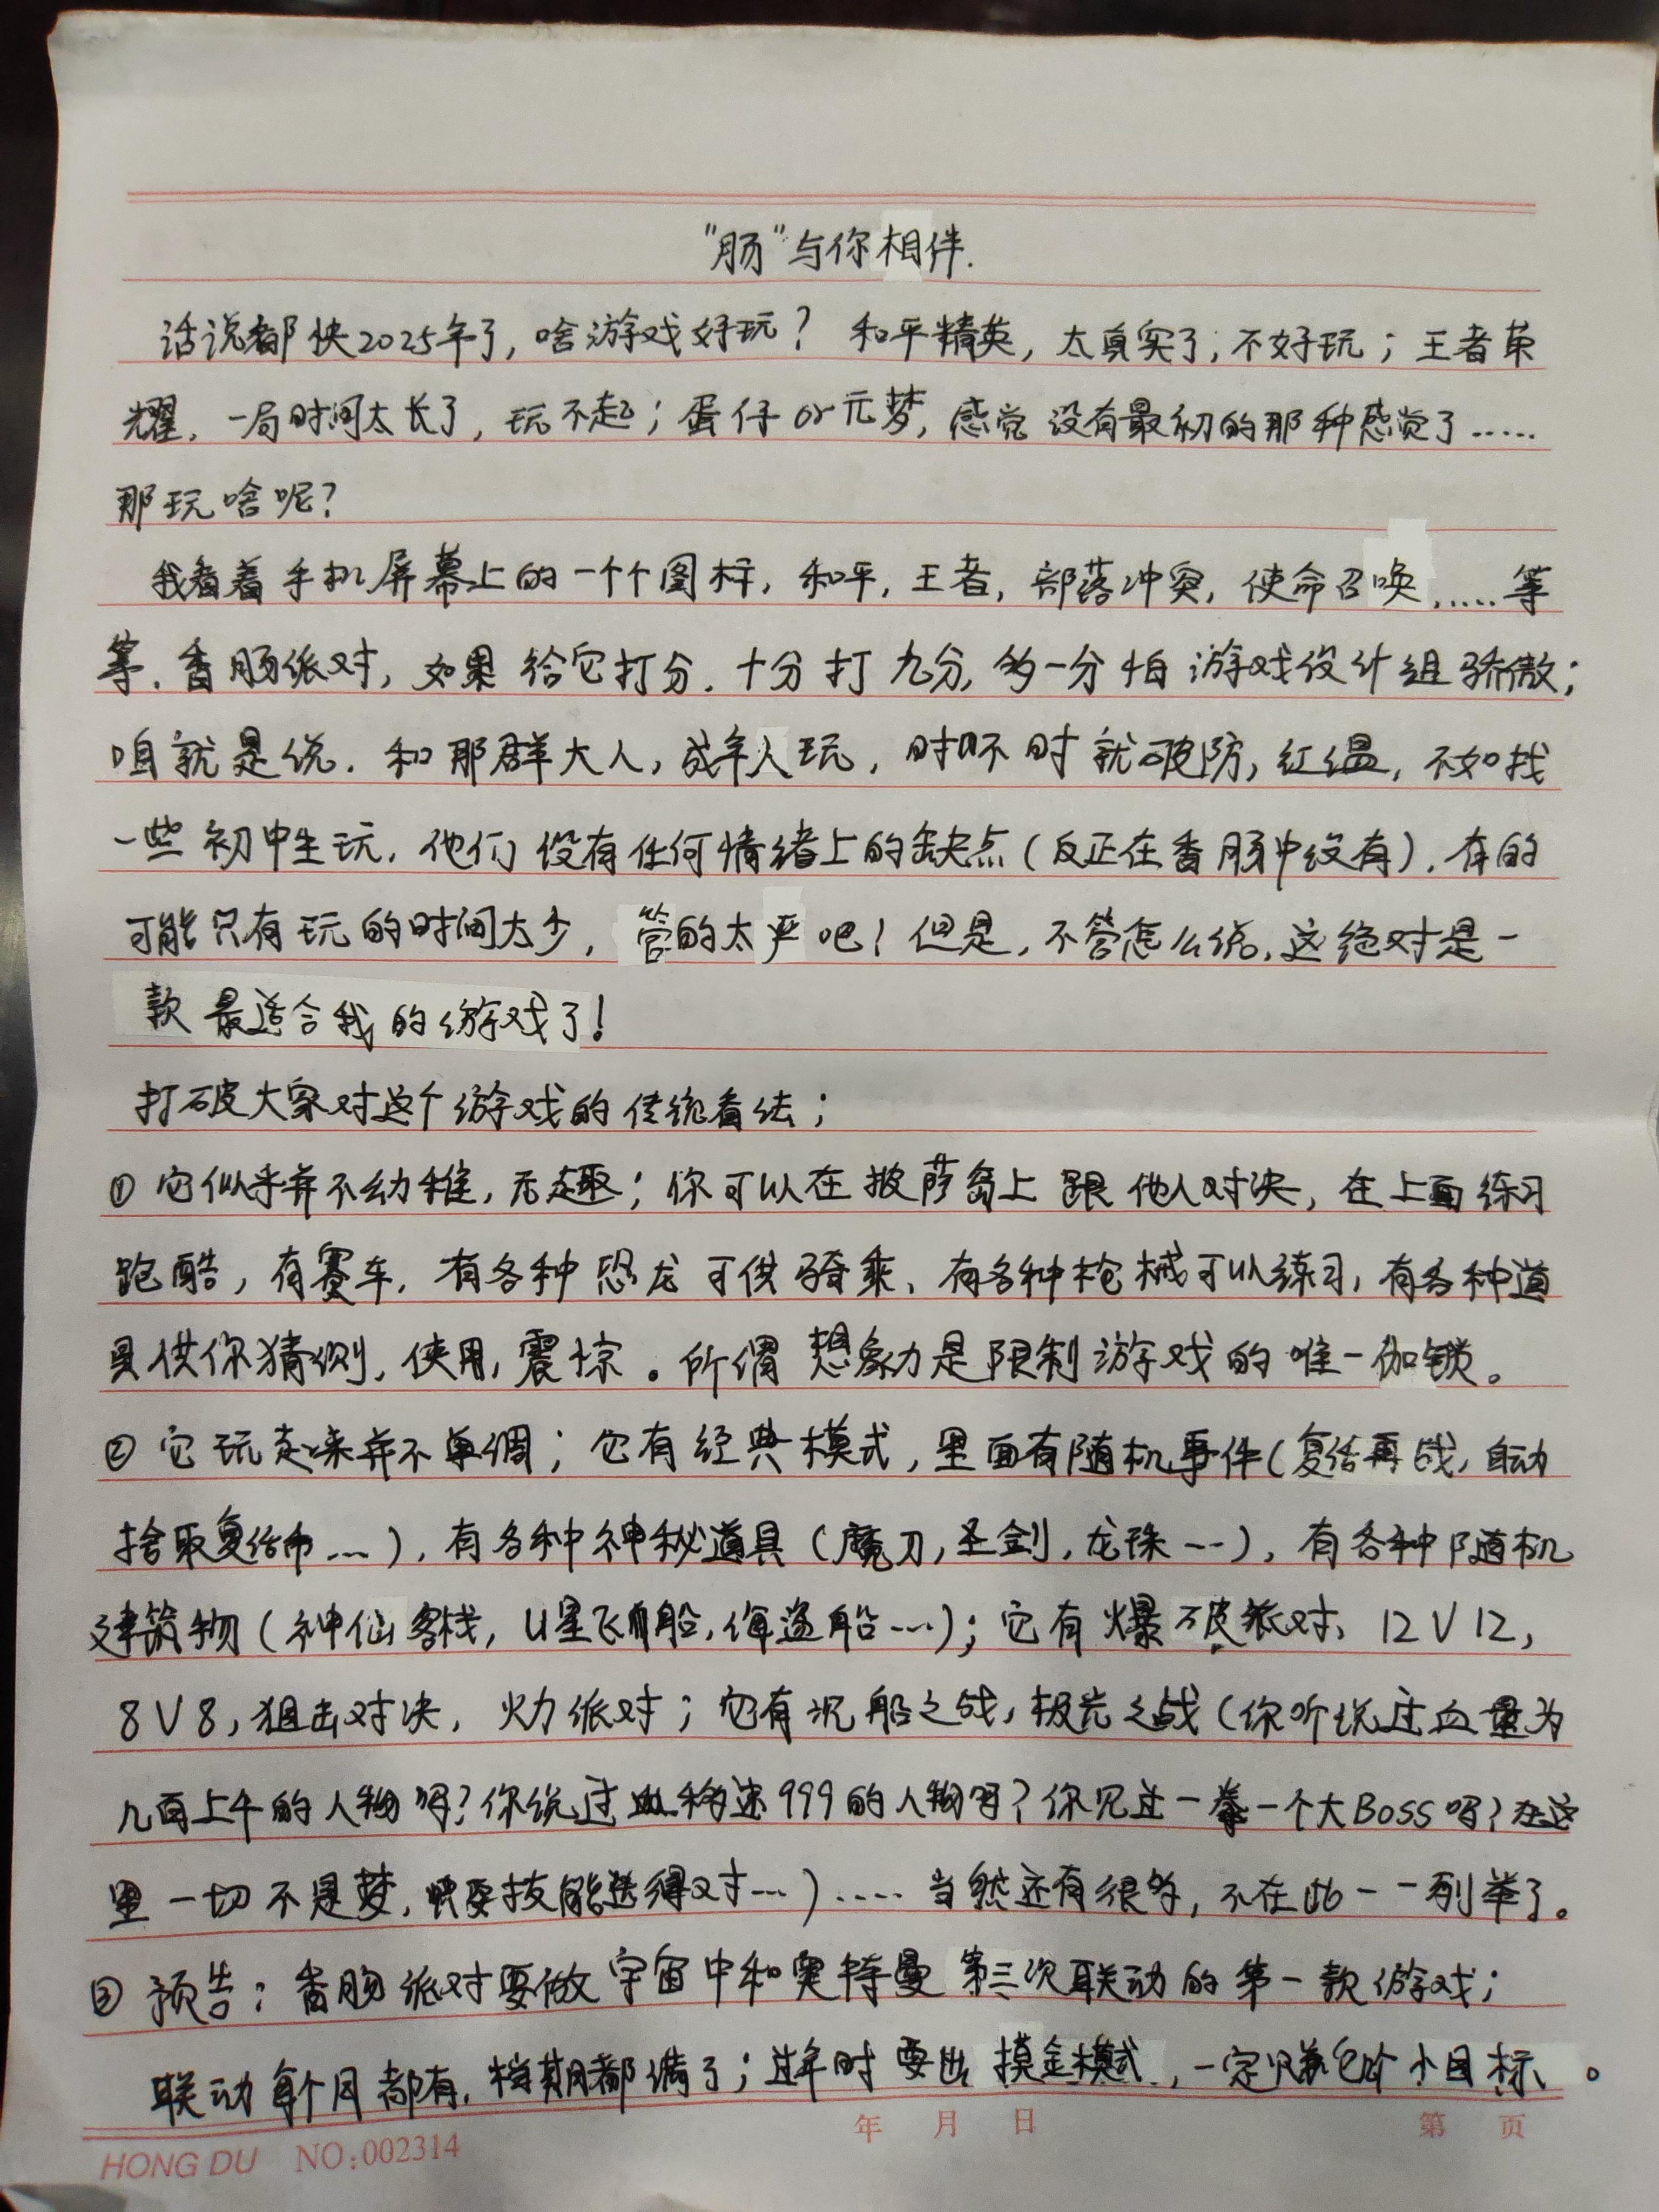 "肠"与你相伴.
话说都快2025年了,啥游戏好玩?和平精英,太真实了,不好玩;王者荣
耀,一局时间太长了,玩不起;蛋仔or元梦,感觉没有最初的那种感觉了……
那玩啥呢?
我看着手机屏幕上的一个个图标,和平,王者,部落冲突,使命召唤……等
等.香肠派对,如果给它打分.十分打九分,多一分怕游戏设计组骄傲;
咱就是说.和那群大人,成年人玩,时不时就破防,红温,不如找
一些初中生玩.他们没有任何情绪上的缺点(反正在香肠中没有).有的
可能只有玩的时间太少,管的太严吧!但是,不管怎么说,这绝对是一
款最适合我的游戏了!
打破大家对这个游戏的传统看法;
①它似乎并不幼稚,无趣;你可以在披萨岛上跟他人对决,在上面练习
跑酷,有赛车,有各种恐龙可供骑乘、有各种枪械可以练习,有各种道
具供你猜测,使用,震惊。所谓想象力是限制游戏的唯一伽锁。
②它玩起来并不单调;它有经典模式,里面有随机事件(复活再战,自动
拾取复活币…),有各种神秘道具(魔刀,圣剑,龙珠…),有各种随机
建筑物(神仙客栈,U星飞船,海盗船…);它有爆破派对、12V12,
8V8,狙击对决,火力派对;它有沉船之战,极光之战(你听说过血量为
几百上千的人物吗?你说过移速999的人物吗?你见过一拳一个大BOSS吗?在这
里一切不是梦,只要技能选得对…)……当然还有很多,不在此一一列举了。
③预告:香肠派对要做宇宙中和奥特曼第三次联动的第一款游戏;
联动每个月都有,档期都满了;过年时要出摸金模式,一定赚它个小目标。
年 月 日 第 页
HONG DU NO:002314